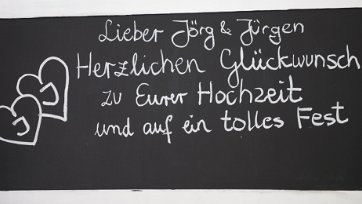 Lieber Jörg & Jürgen
Herzlichen Glückwunsch
zu Eurer Hochzeit
und auf ein tolles Fest
J
J